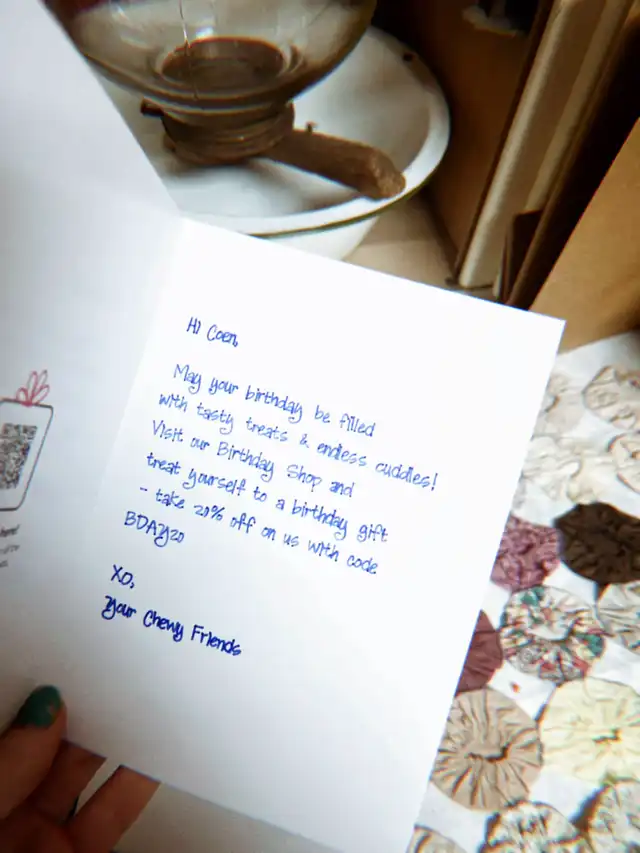 Hi Coen,
May your birthday be filled
with tasty treats & endless cuddles!
Visit our Birthday Shop and
treat yourself to a birthday gift
- take 20% off on us with code
BDAY20
XO,
Your Chewy Friends